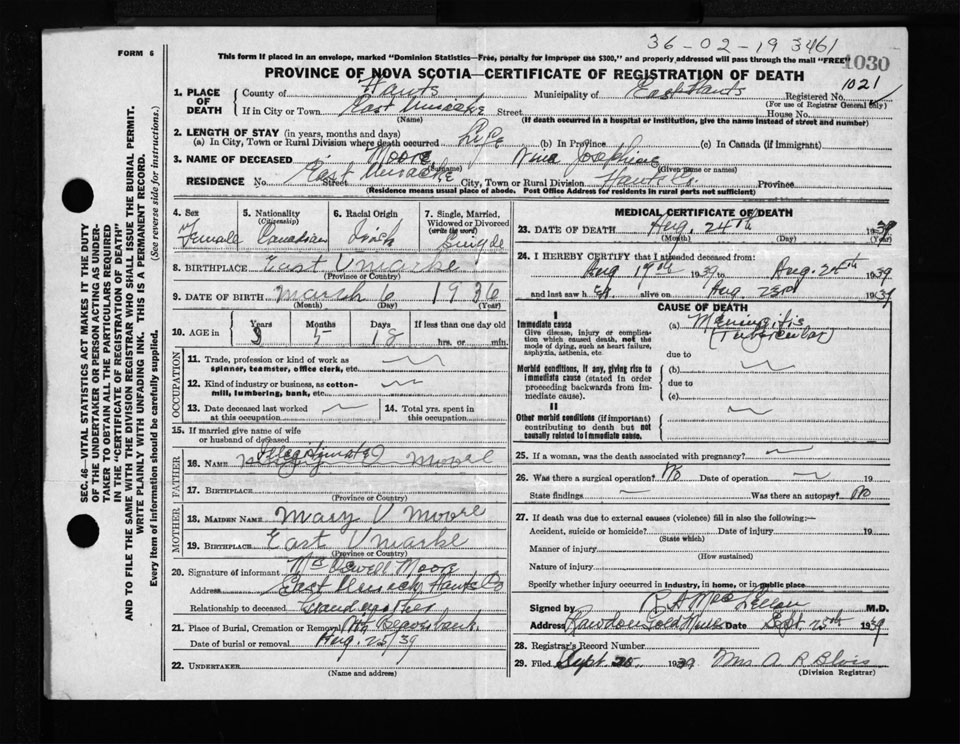 36-02-193461
FORM 6
This form if placed in an envelope, marked "Dominion Statistics—Free, penalty for improper use $300," and properly addressed will pass through the mail "FREE"
1030
PROVINCE OF NOVA SCOTIA—CERTIFICATE OF REGISTRATION OF DEATH
1021
1. PLACE OF DEATH
County of Hants Municipality of East Hants Registered No.
(For use of Registrar General only)
If in City or Town East Uniacke Street House No.
(Name) (If death occurred in a hospital or institution, give the name instead of street and number)
2. LENGTH OF STAY (in years, months and days)
(a) In City, Town or Rural Division where death occurred Life (b) In Province (c) In Canada (if immigrant)
3. NAME OF DECEASED Moore Nina Josephine
(Surname) (Given name or names)
RESIDENCE No. East Uniacke Street City, Town or Rural Division Hants Co. Province
(Residence means usual place of abode. Post Office Address for residents in rural parts not sufficient)
4. Sex
Female
5. Nationality
(Citizenship)
Canadian
6. Racial Origin
Irish
7. Single, Married, Widowed or Divorced
(write the word)
Single
8. BIRTHPLACE East Uniacke
(Province or Country)
9. DATE OF BIRTH March 6 1936
(Month) (Day) (Year)
10. AGE in Years Months Days If less than one day old
3 5 18 hrs. or min.
OCCUPATION
11. Trade, profession or kind of work as
spinner, teamster, office clerk, etc.
12. Kind of industry or business, as cotton-
mill, lumbering, bank, etc.
13. Date deceased last worked
at this occupation
14. Total yrs. spent in
this occupation
15. If married give name of wife
or husband of deceased
FATHER
16. NAME Illegitimate Moore
17. BIRTHPLACE
(Province or Country)
MOTHER
18. MAIDEN NAME Mary V Moore
19. BIRTHPLACE East Uniacke
(Province or Country)
20. Signature of informant Mrs Moore
Address East Uniacke Hants Co
Relationship to deceased Grandmother
21. Place of Burial, Cremation or Removal Beaverbank.
Date of burial or removal Aug. 25/39
22. UNDERTAKER
(Name and address)
MEDICAL CERTIFICATE OF DEATH
23. DATE OF DEATH Aug. 24th 1939
(Month) (Day) (Year)
24. I HEREBY CERTIFY that I attended deceased from:
Aug 19th 1939 to Aug. 24th 1939
and last saw her alive on Aug 23rd 1939
CAUSE OF DEATH
I
Immediate cause
Give disease, injury or complica-
tion which caused death, not the
mode of dying, such as heart failure,
asphyxia, asthenia, etc.
(a) Meningitis
(Tubercular)
due to
Morbid conditions, if any, giving rise to
immediate cause (stated in order
proceeding backwards from im-
mediate cause).
(b)
due to
(c)
II
Other morbid conditions (if important)
contributing to death but not
causally related to immediate cause.
25. If a woman, was the death associated with pregnancy?
26. Was there a surgical operation? No Date of operation 19
State findings Was there an autopsy? No
27. If death was due to external causes (violence) fill in also the following:—
Accident, suicide or homicide? Date of injury 19
(State which)
Manner of injury
(How sustained)
Nature of injury
Specify whether injury occurred in industry, in home, or in public place
Signed by R A MacLellan M.D.
Address Rawdon Gold Mines Date Sept. 25th 1939
28. Registrar's Record Number
29. Filed Sept. 25. 1939 Mrs A R Blois
(Division Registrar)
SEC. 46—VITAL STATISTICS ACT MAKES IT THE DUTY
OF THE UNDERTAKER OR PERSON ACTING AS UNDER-
TAKER TO OBTAIN ALL THE PARTICULARS REQUIRED
IN THE "CERTIFICATE OF REGISTRATION OF DEATH"
AND TO FILE THE SAME WITH THE DIVISION REGISTRAR WHO SHALL ISSUE THE BURIAL PERMIT.
WRITE PLAINLY WITH UNFADING INK. THIS IS A PERMANENT RECORD.
Every item of information should be carefully supplied. (See reverse side for instructions.)